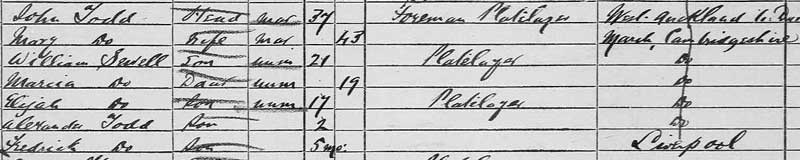 John Todd Head Mar 37 Foreman Platelayer West Auckland Co. Dur
Mary Do Wife Mar 43 March, Cambridgeshire
William Sewell Son unm 21 Platelayer Do
Marcia Do Daur unm 19 Do
Elijah Do Son unm 17 Platelayer Do
Alexander Todd Son 2 Do
Fredrick Do Son 5 mo. Liverpool